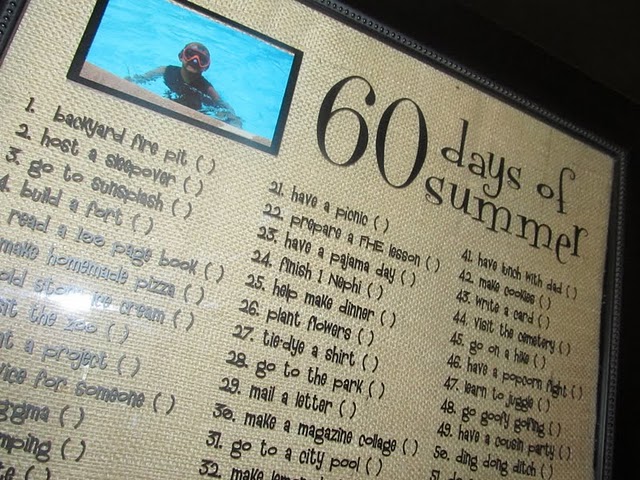 60 days of
summer
1. backyard fire pit ( )
2. host a sleepover ( )
3. go to sunsplash ( )
4. build a fort ( )
read a 100 page book ( )
make homemade pizza ( )
old store ice cream ( )
sit the zoo ( )
a project ( )
vice for someone ( )
( )
mping ( )
( )
21. have a picnic ( )
22. prepare a FHE lesson ( )
23. have a pajama day ( )
24. finish 1 Nephi ( )
25. help make dinner ( )
26. plant flowers ( )
27. tie-dye a shirt ( )
28. go to the park ( )
29. mail a letter ( )
30. make a magazine collage ( )
31. go to a city pool ( )
32. make
41. have lunch with dad ( )
42. make cookies ( )
43. write a card ( )
44. visit the cemetery ( )
45. go on a hike ( )
46. have a popcorn fight ( )
47. learn to juggle ( )
48. go goofy golfing ( )
49. have a cousin party ( )
50. ding dong ditch ( )
51.